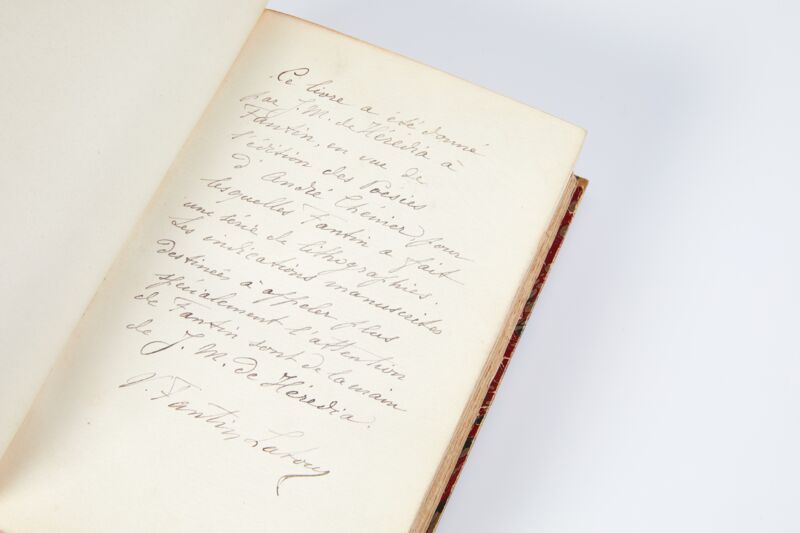 Ce livre a été donné
par J. M. de Hérédia à
Fantin, en vue de
l'édition des Poésies
d'André Chénier pour
lesquelles Fantin a fait
une série de lithographies.
Les indications manuscrites
destinées à appeler plus
spécialement l'attention
de Fantin sont de la main
de J. M. de Hérédia.
V. Fantin Latour